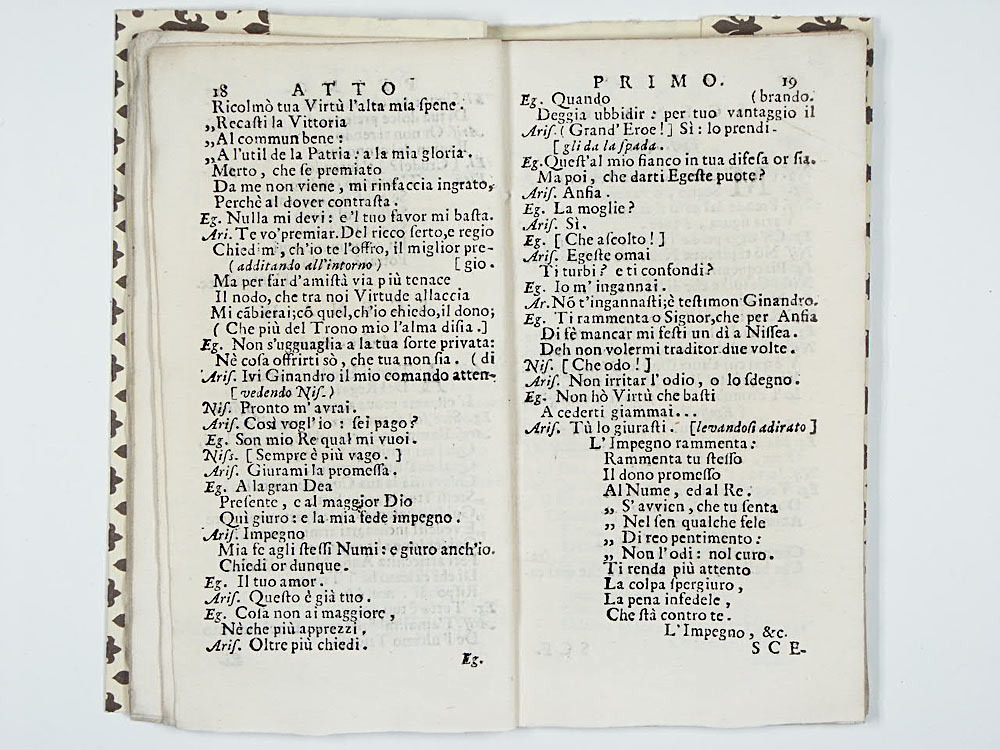 18 ATTO
Ricolmò tua Virtù l'alta mia ſpene.
„Recaſti la Vittoria
„Al commun bene:
„A l'util de la Patria: a la mia gloria.
Merto, che ſe premiato
Da me non viene, mi rinfaccia ingrato,
Perchè al dover contraſta.
Eg. Nulla mi devi: e'l tuo favor mi baſta.
Ari. Te vo'premiar. Del ricco ſerto,e regio
Chiedimi, ch'io te l'offro, il miglior pre-
(additando all'intorno) [gio.
Ma per far d'amiſtà via più tenace
Il nodo, che tra noi Virtude allaccia
Mi cãbierai;cõ quel,ch'io chiedo,il dono;
( Che più del Trono mio l'alma diſia.]
Eg. Non s'ugguaglia a la tua ſorte privata:
Nè coſa offrirti sò, che tua non ſia. (di
Ariſ. Ivi Ginandro il mio comando atten-
[vedendo Niſ.)
Niſ. Pronto m'avrai.
Ariſ. Così vogl'io: ſei pago?
Eg. Son mio Re qual mi vuoi.
Niſs. [Sempre è più vago.]
Ariſ. Giurami la promeſſa.
Eg. A la gran Dea
Preſente, e al maggior Dio
Quì giuro: e la mia fede impegno.
Ariſ. Impegno
Mia fe agli ſteſſi Numi: e giuro anch'io.
Chiedi or dunque.
Eg. Il tuo amor.
Ariſ. Queſto è già tuo.
Eg. Coſa non ai maggiore,
Nè che più apprezzi,
Ariſ. Oltre più chiedi.
Eg.
PRIMO. 19
Eg. Quando (brando.
Deggia ubbidir: per tuo vantaggio il
Ariſ. (Grand'Eroe!] Sì: lo prendi.
[gli da la ſpada.
Eg.Queſt'al mio fianco in tua difeſa or ſia.
Ma poi, che darti Egeſte puote?
Ariſ. Anſia.
Eg. La moglie?
Ariſ. Sì.
Eg. [Che aſcolto!]
Ariſ. Egeſte omai
Ti turbi? e ti confondi?
Eg. Io m'ingannai.
Ar.Nõ t'ingannaſti;è teſtimon Ginandro.
Eg. Ti rammenta o Signor,che per Anſia
Di fè mancar mi feſti un dì a Niſſea.
Deh non volermi traditor due volte.
Niſ. [Che odo!]
Ariſ. Non irritar l'odio, o lo ſdegno.
Eg. Non hò Virtù che baſti
A cederti giammai...
Ariſ. Tù lo giuraſti. [levandoſi adirato]
L'Impegno rammenta:
Rammenta tu ſteſſo
Il dono promeſſo
Al Nume, ed al Re.
„ S'avvien, che tu ſenta
„ Nel ſen qualche fele
„ Di reo pentimento:
„ Non l'odi: nol curo.
Ti renda più attento
La colpa ſpergiuro,
La pena infedele,
Che ſtà contro te.
L'Impegno, &c.
SCE-